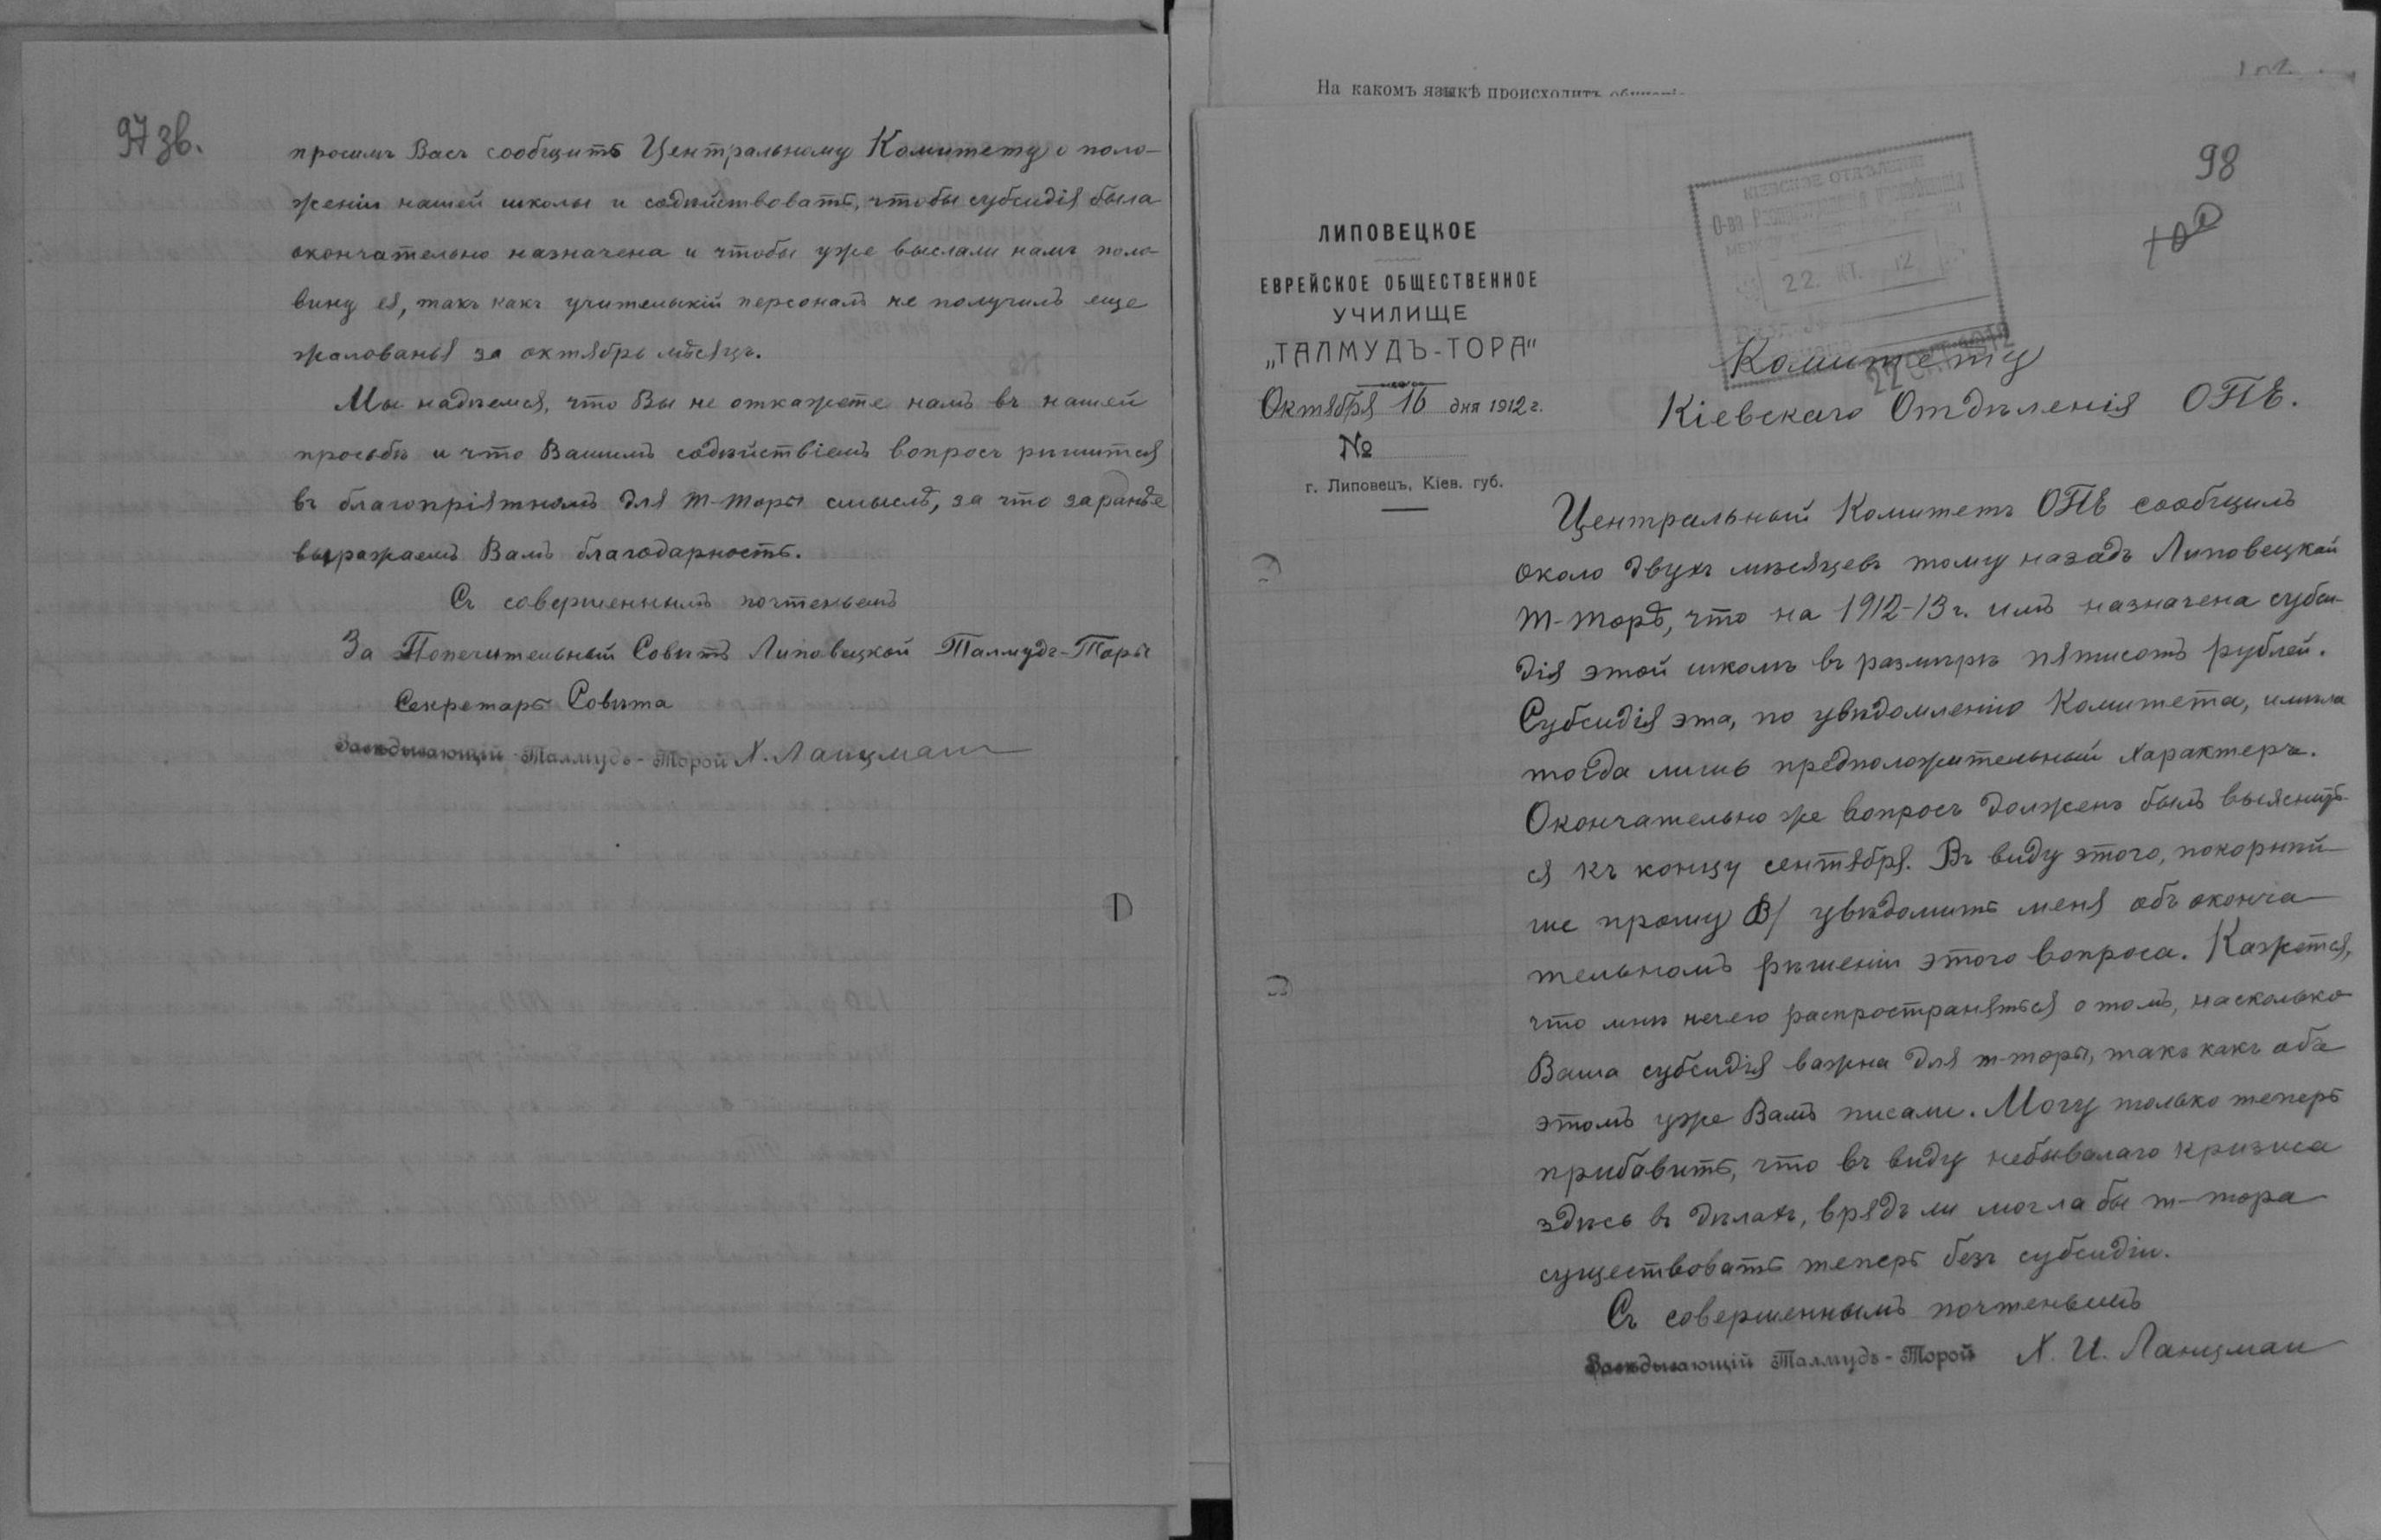 97 зв.
просимъ Васъ сообщить Центральному Комитету о поло-
женіи нашей школы и содѣйствовать, чтобы субсидія была
окончательно назначена и чтобы уже выслали намъ поло-
вину ея, такъ какъ учительскій персоналъ не получилъ еще
жалованья за октябрь мѣсяцъ.
Мы надѣемся, что Вы не откажете намъ въ нашей
просьбѣ и что Вашимъ содѣйствіемъ вопросъ рѣшится
въ благопріятномъ для т-торы смыслѣ, за что заранѣе
выражаемъ Вамъ благодарность.
Съ совершеннымъ почтеньемъ
За Попечительный Совѣтъ Липовецкой Талмудъ-Торы
Секретарь Совѣта
Завѣдывающій Талмудъ-Торой Х. Ланцман
На какомъ языкѣ происходитъ
98
КІЕВСКОЕ ОТДѢЛЕНІЕ
О-ва
22 ОКТ. 12
ЛИПОВЕЦКОЕ
ЕВРЕЙСКОЕ ОБЩЕСТВЕННОЕ
УЧИЛИЩЕ
„ТАЛМУДЪ-ТОРА"
Октября 16 дня 1912 г.
№
г. Липовецъ, Кіев. губ.
Комитету
22 1912
Кіевскаго Отдѣленія ОПЕ.
Центральный Комитетъ ОПЕ сообщилъ
около двухъ мѣсяцевъ тому назадъ Липовецкой
т-торѣ, что на 1912-13 г. имъ назначена субси-
дія этой школѣ въ размѣрѣ пятисотъ рублей.
Субсидія эта, по увѣдомленію Комитета, имѣла
тогда лишь предположительный характеръ.
Окончательно же вопросъ долженъ былъ выяснить-
ся къ концу сентября. Въ виду этого, покорнѣй-
ше прошу В/ увѣдомить меня объ оконча-
тельномъ рѣшеніи этого вопроса. Кажется,
что мнѣ нечего распространяться о томъ, насколько
Ваша субсидія важна для т-торы, такъ какъ объ
этомъ уже Вамъ писали. Могу только теперь
прибавить, что въ виду небывалаго кризиса
здѣсь въ дѣлахъ, врядъ ли могла бы т-тора
существовать теперь безъ субсидіи.
Съ совершеннымъ почтеньемъ
Завѣдывающій Талмудъ-Торой Х. И. Ланцман